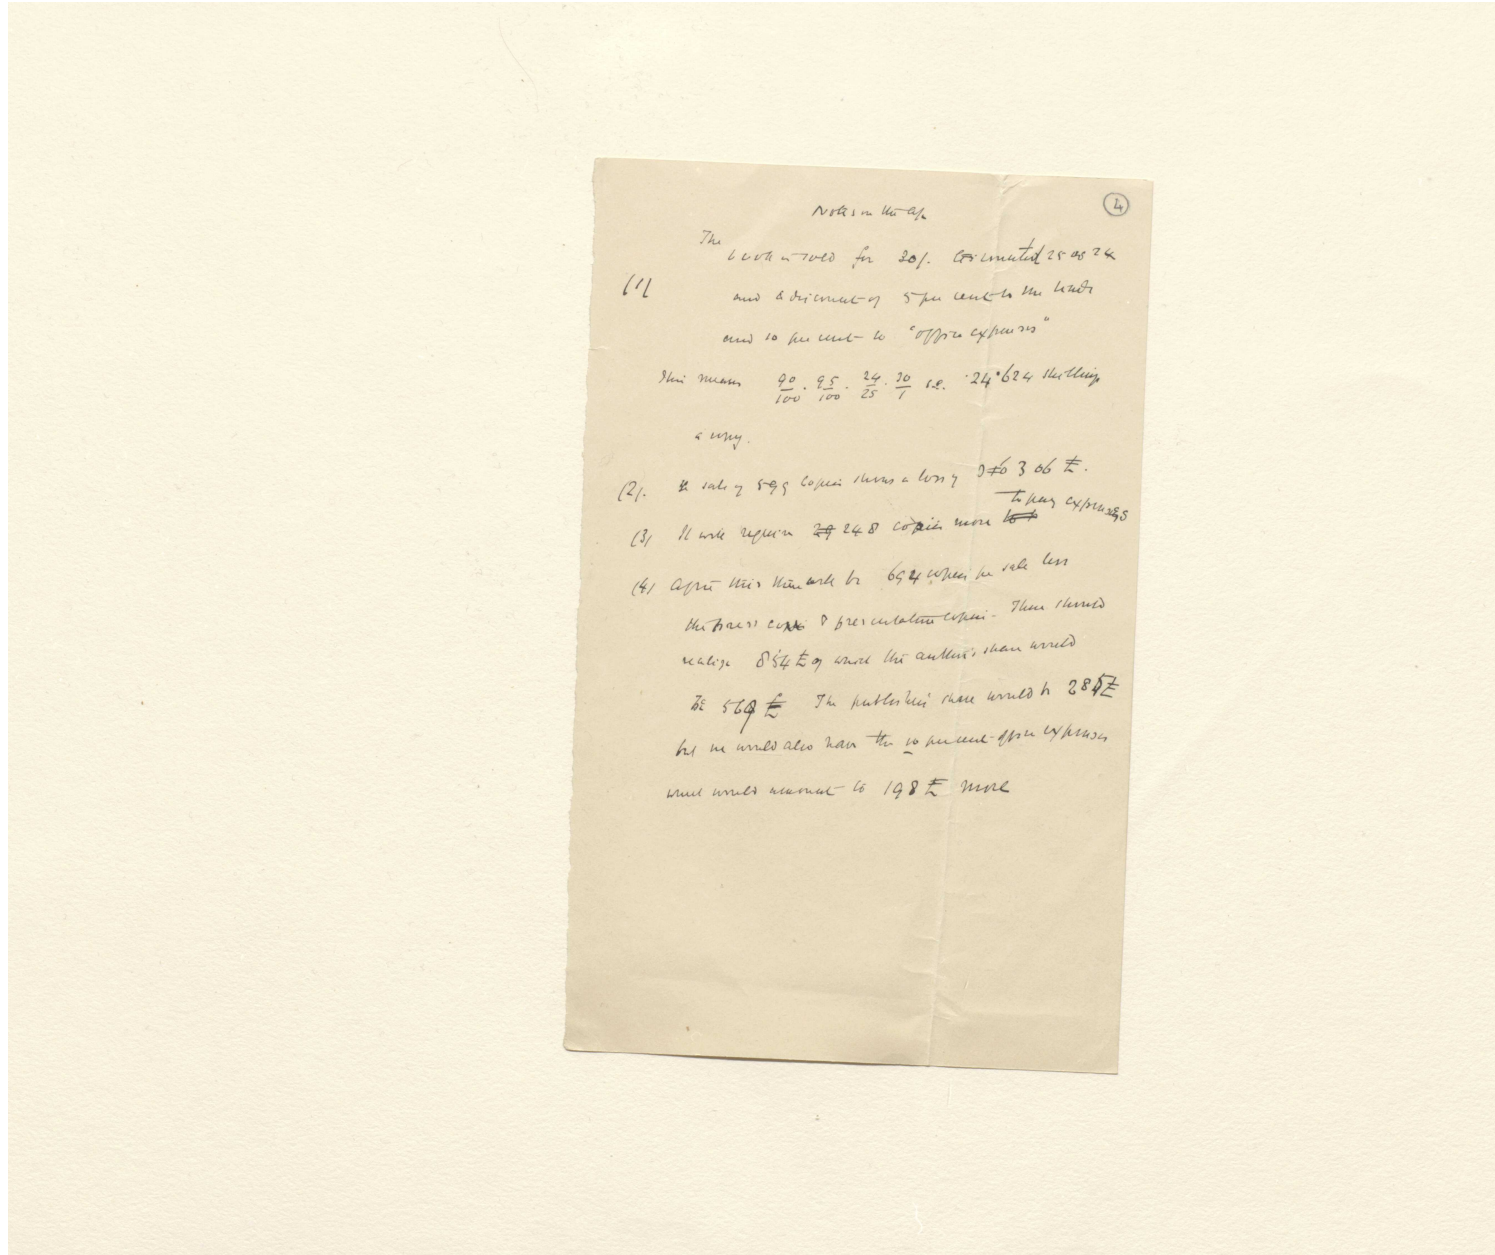 4
Notes on the a/c
The
book is sold for 30/. estimated 25 as 24
(1)
and a discount of 5 per cent to the trade
and 10 per cent to "office expenses"
This means 90/100 . 95/100 . 24/25 . 30/1 i.e. 24.624 shillings
a copy.
(2). sale of 599 copies shows a loss of 306 £.
to pay expenses
(3) It will require 248 copies more
(4) After this there will be 694 copies for sale less
the press & presentation copies. These should
realize 854 £ of which the author's share would
be 569 £ The publishers' share would be 285 £
but he would also have the 10 per cent office expenses
which would amount to 198 £ more